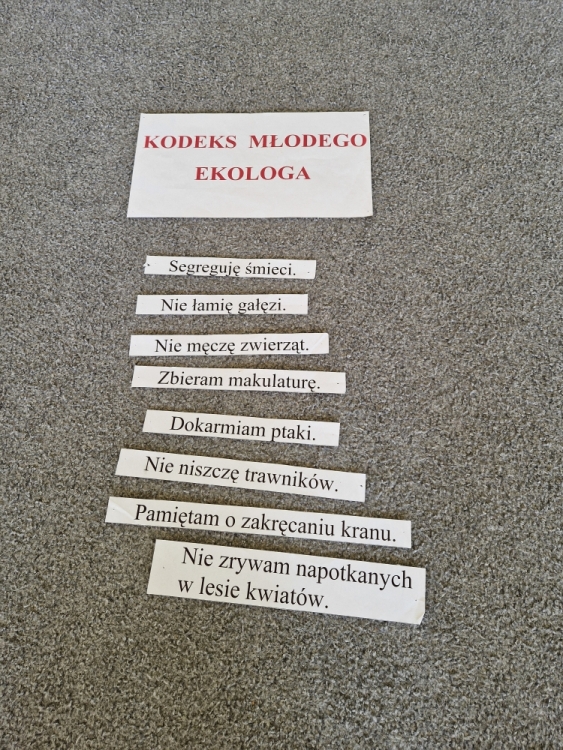 KODEKS MŁODEGO
EKOLOGA
Segreguję śmieci.
Nie łamię gałęzi.
Nie męczę zwierząt.
Zbieram makulaturę.
Dokarmiam ptaki.
Nie niszczę trawników.
Pamiętam o zakręcaniu kranu.
Nie zrywam napotkanych
w lesie kwiatów.